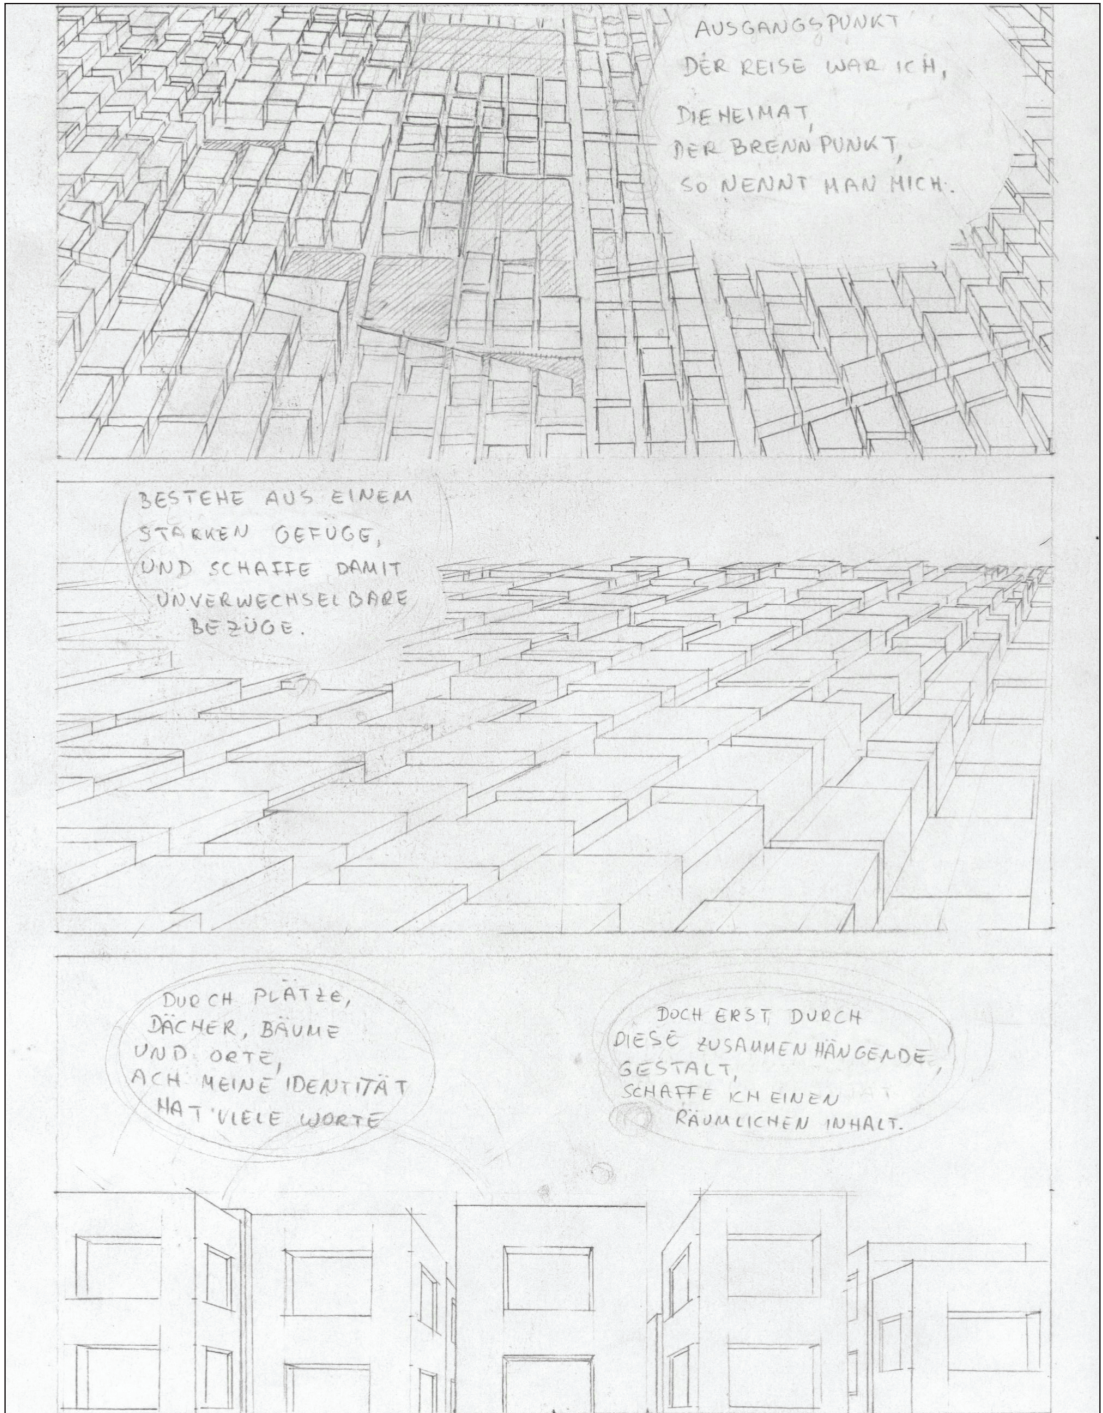 AUSGANGSPUNKT
DER REISE WAR ICH,
DIE HEIMAT,
DER BRENNPUNKT,
SO NENNT MAN MICH.
BESTEHE AUS EINEM
STARKEN GEFÜGE,
UND SCHAFFE DAMIT
UNVERWECHSELBARE
BEZÜGE.
DURCH PLÄTZE,
DÄCHER, BÄUME
UND ORTE,
ACH MEINE IDENTITÄT
HAT VIELE WORTE
DOCH ERST DURCH
DIESE ZUSAMMENHÄNGENDE
GESTALT,
SCHAFFE ICH EINEN
RÄUMLICHEN INHALT.